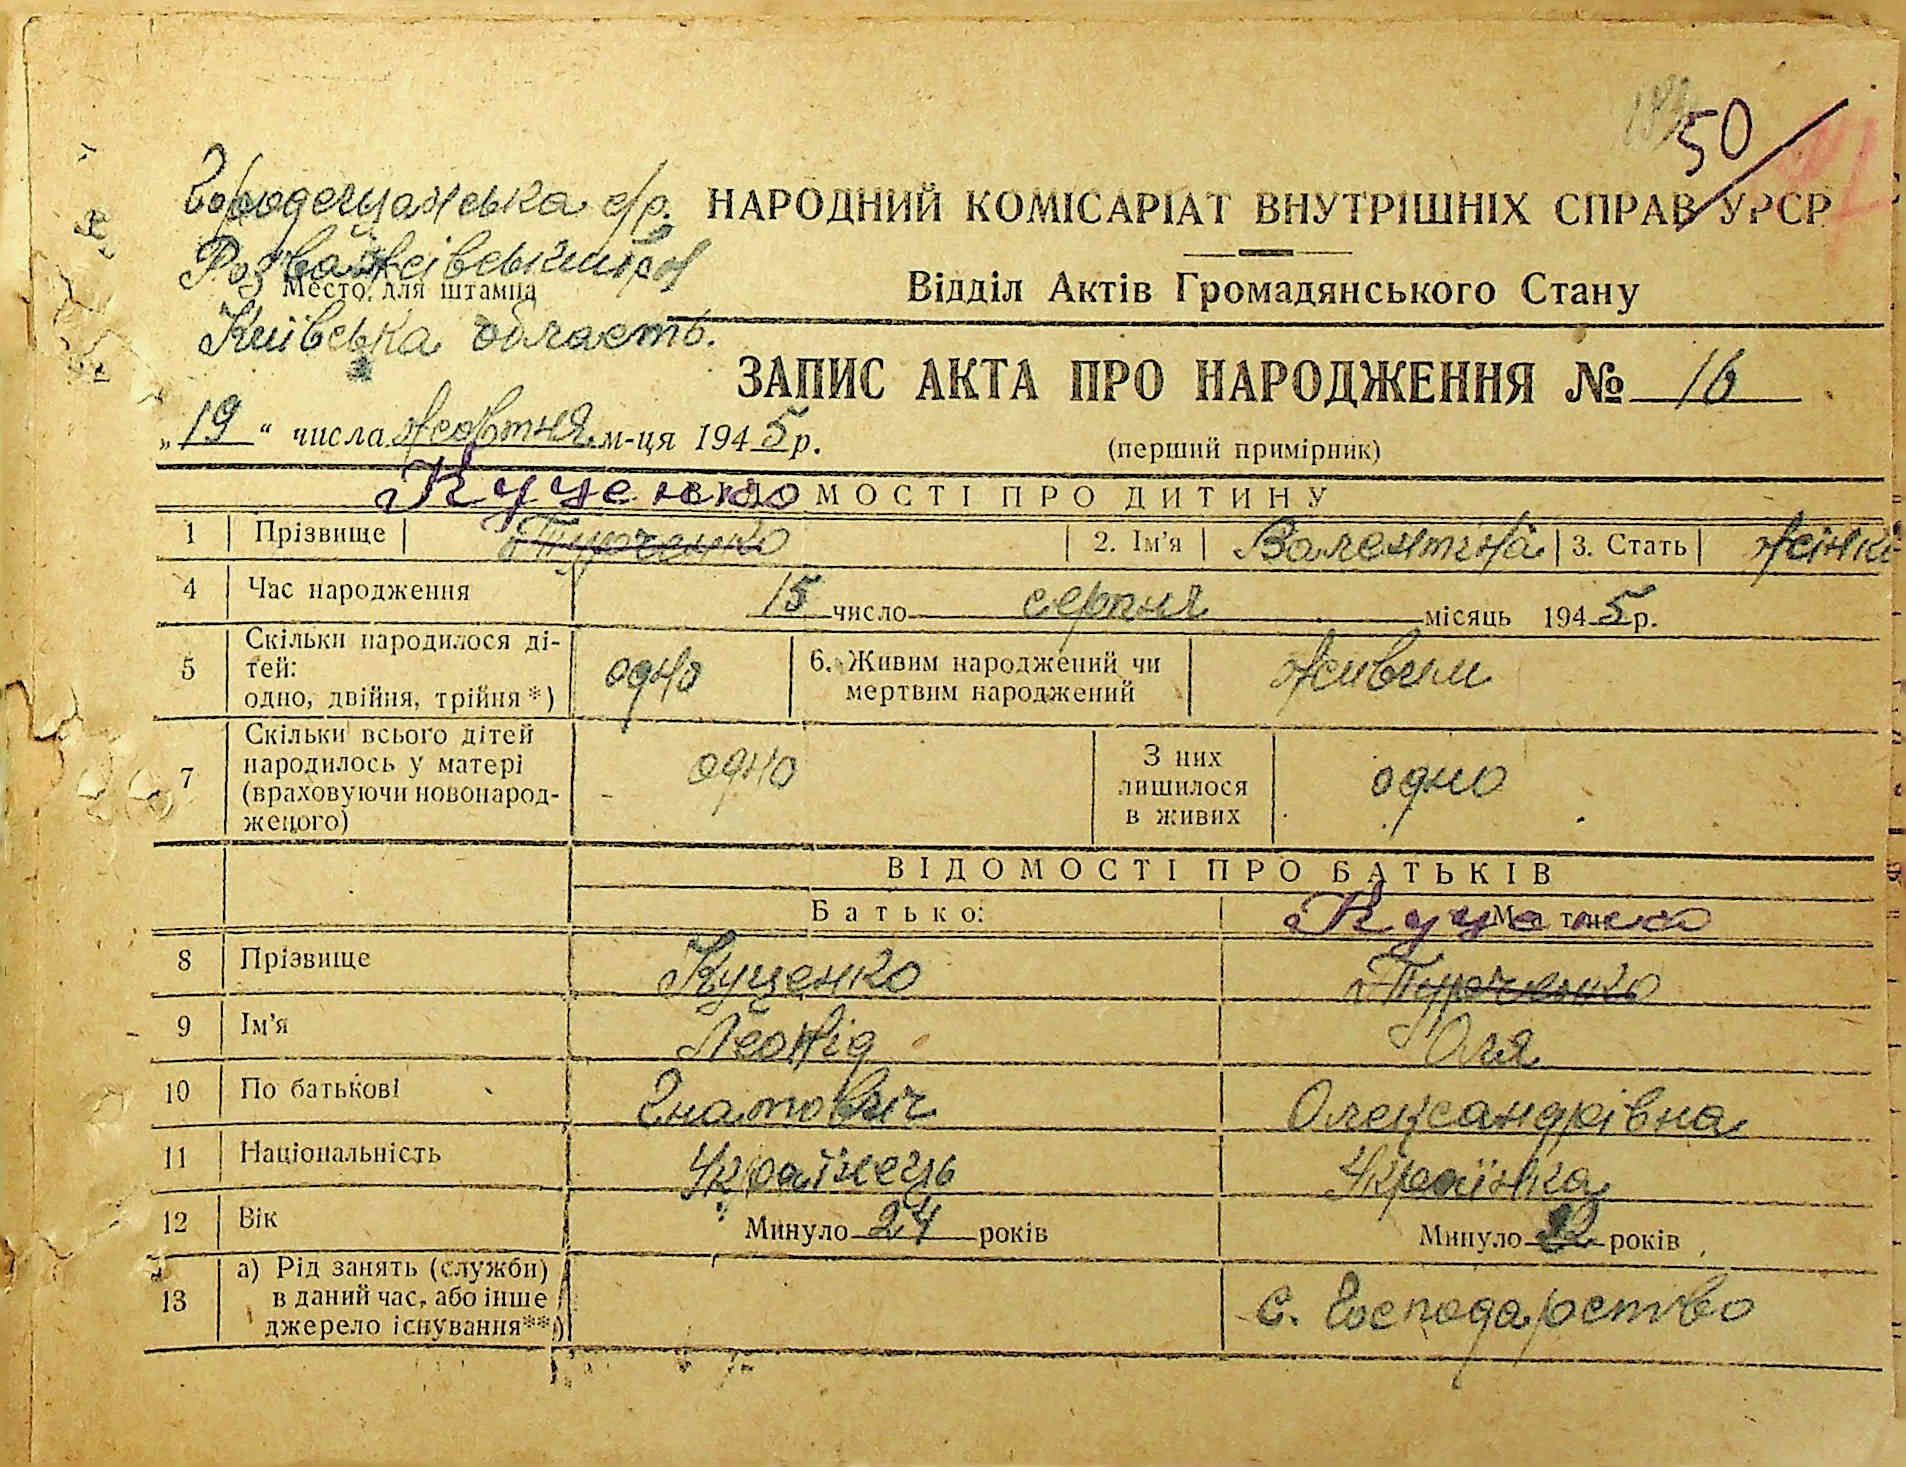 50
Городещанська с/р.
Розважівський р-н
Київська область.
НАРОДНИЙ КОМІСАРІАТ ВНУТРІШНІХ СПРАВ УРСР
Место для штампа
Відділ Актів Громадянського Стану
ЗАПИС АКТА ПРО НАРОДЖЕННЯ № 16
„19“ числа жовтня м-ця 1945 р.
(перший примірник)
Куценко
ВІДОМОСТІ ПРО ДИТИНУ
1 Прізвище Турченко 2. Ім'я Валентина 3. Стать жінка
4 Час народження 15 число серпня місяць 1945 р.
5 Скільки народилося ді-
тей:
одно, двійня, трійня*) одно 6. Живим народжений чи
мертвим народжений живим
7 Скільки всього дітей
народилось у матері
(враховуючи новонарод-
женого) одно З них
лишилося
в живих одно
ВІДОМОСТІ ПРО БАТЬКІВ
Батько: Мати: Куценко
8 Прізвище Куценко Турченко
9 Ім'я Леонід Оля
10 По батькові Гнатович Олександрівна
11 Національність Українець Українка
12 Вік Минуло 24 років Минуло 22 років
13 а) Рід занять (служби)
в даний час, або інше
джерело існування**) с. Господарство